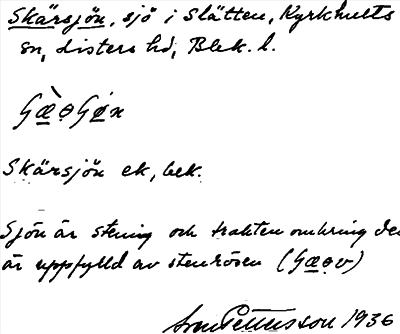 Skärsjön, sjö i Slätten, Kyrkhults
sn, Listers hd, Blek. l.
Skärsjön ek, bek.
Sjön är stenig och trakten omkring den
är uppfylld av stenrösen
Pettersson 1936